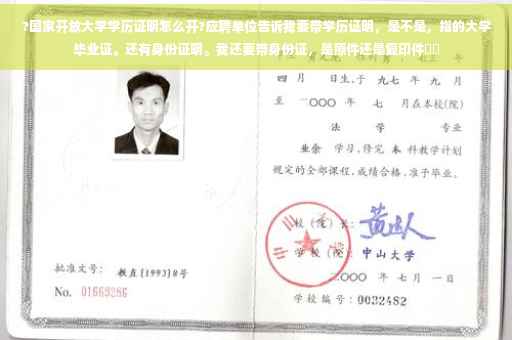 ?国家开放大学学历证明怎么开?应聘单位告诉我要带学历证明，是不是，指的大学
毕业证。还有身份证明。我还要带身份证，是原件还是复印件
四 月 日生,于 九七 年 九 月
至 二〇〇〇 年 七 月在本校(院)
法 学 专业
业余 学习,修完 本 科教学计划
规定的全部课程,成绩合格,准予毕业。
校(院)长:
学校(院): 中山大学
批准文号: 教直[1993]8号
二〇〇〇 年 七 月 一 日
No. 01663286
学校编号: 0032482